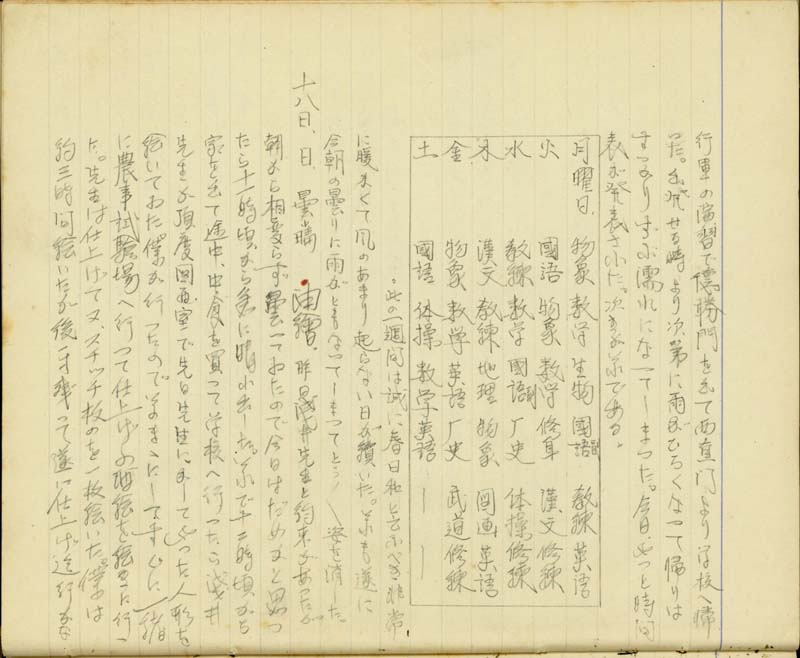 行軍の演習で德勝門を出て西直門より学校へ帰
った。出発せる時より次第に雨がひろくなって帰りは
すっかりずぶ濡れになってしまった。今日やっと時間
表が発表された。次の如くである。
月曜日、物象 数学 生物 國語 教練 英語
火 國語 物象 数学 修身 漢文 修練
水 教練 数学 國語 歴史 体操 修練
木 漢文 教練 地理 物象 図画 英語
金 物象 数学 英語 歴史 武道 修練
土 國語 体操 数学 英語 ー ー
。此の一週間は誠に春日和と云ふべき非常
に暖かくて風のあまり起らない日が續いた。それも遂に
今朝の曇りに雨がともなってしまってとう〱姿を消した。
十八日、日、曇晴 油繪、昨日浅井先生と約束があったが
朝から相変らず曇っておたので今日はだめかと思っ
たら十一時頃から急に晴れ出した。それで十二時頃から
家を出て途中、中食を買って学校へ行ったら浅井
先生が頂度図画室で先日先生にかしてやった人形を
絵いておた。僕が行ったのでそのまゝにしてすぐに一緒
に農事試験場へ行って仕上げの油絵を絵きに行っ
た。先生は仕上げて又、スケッチ板のを一枚絵いた。僕は
約三時間絵いたが後一寸残って遂に仕上げ迄行かな